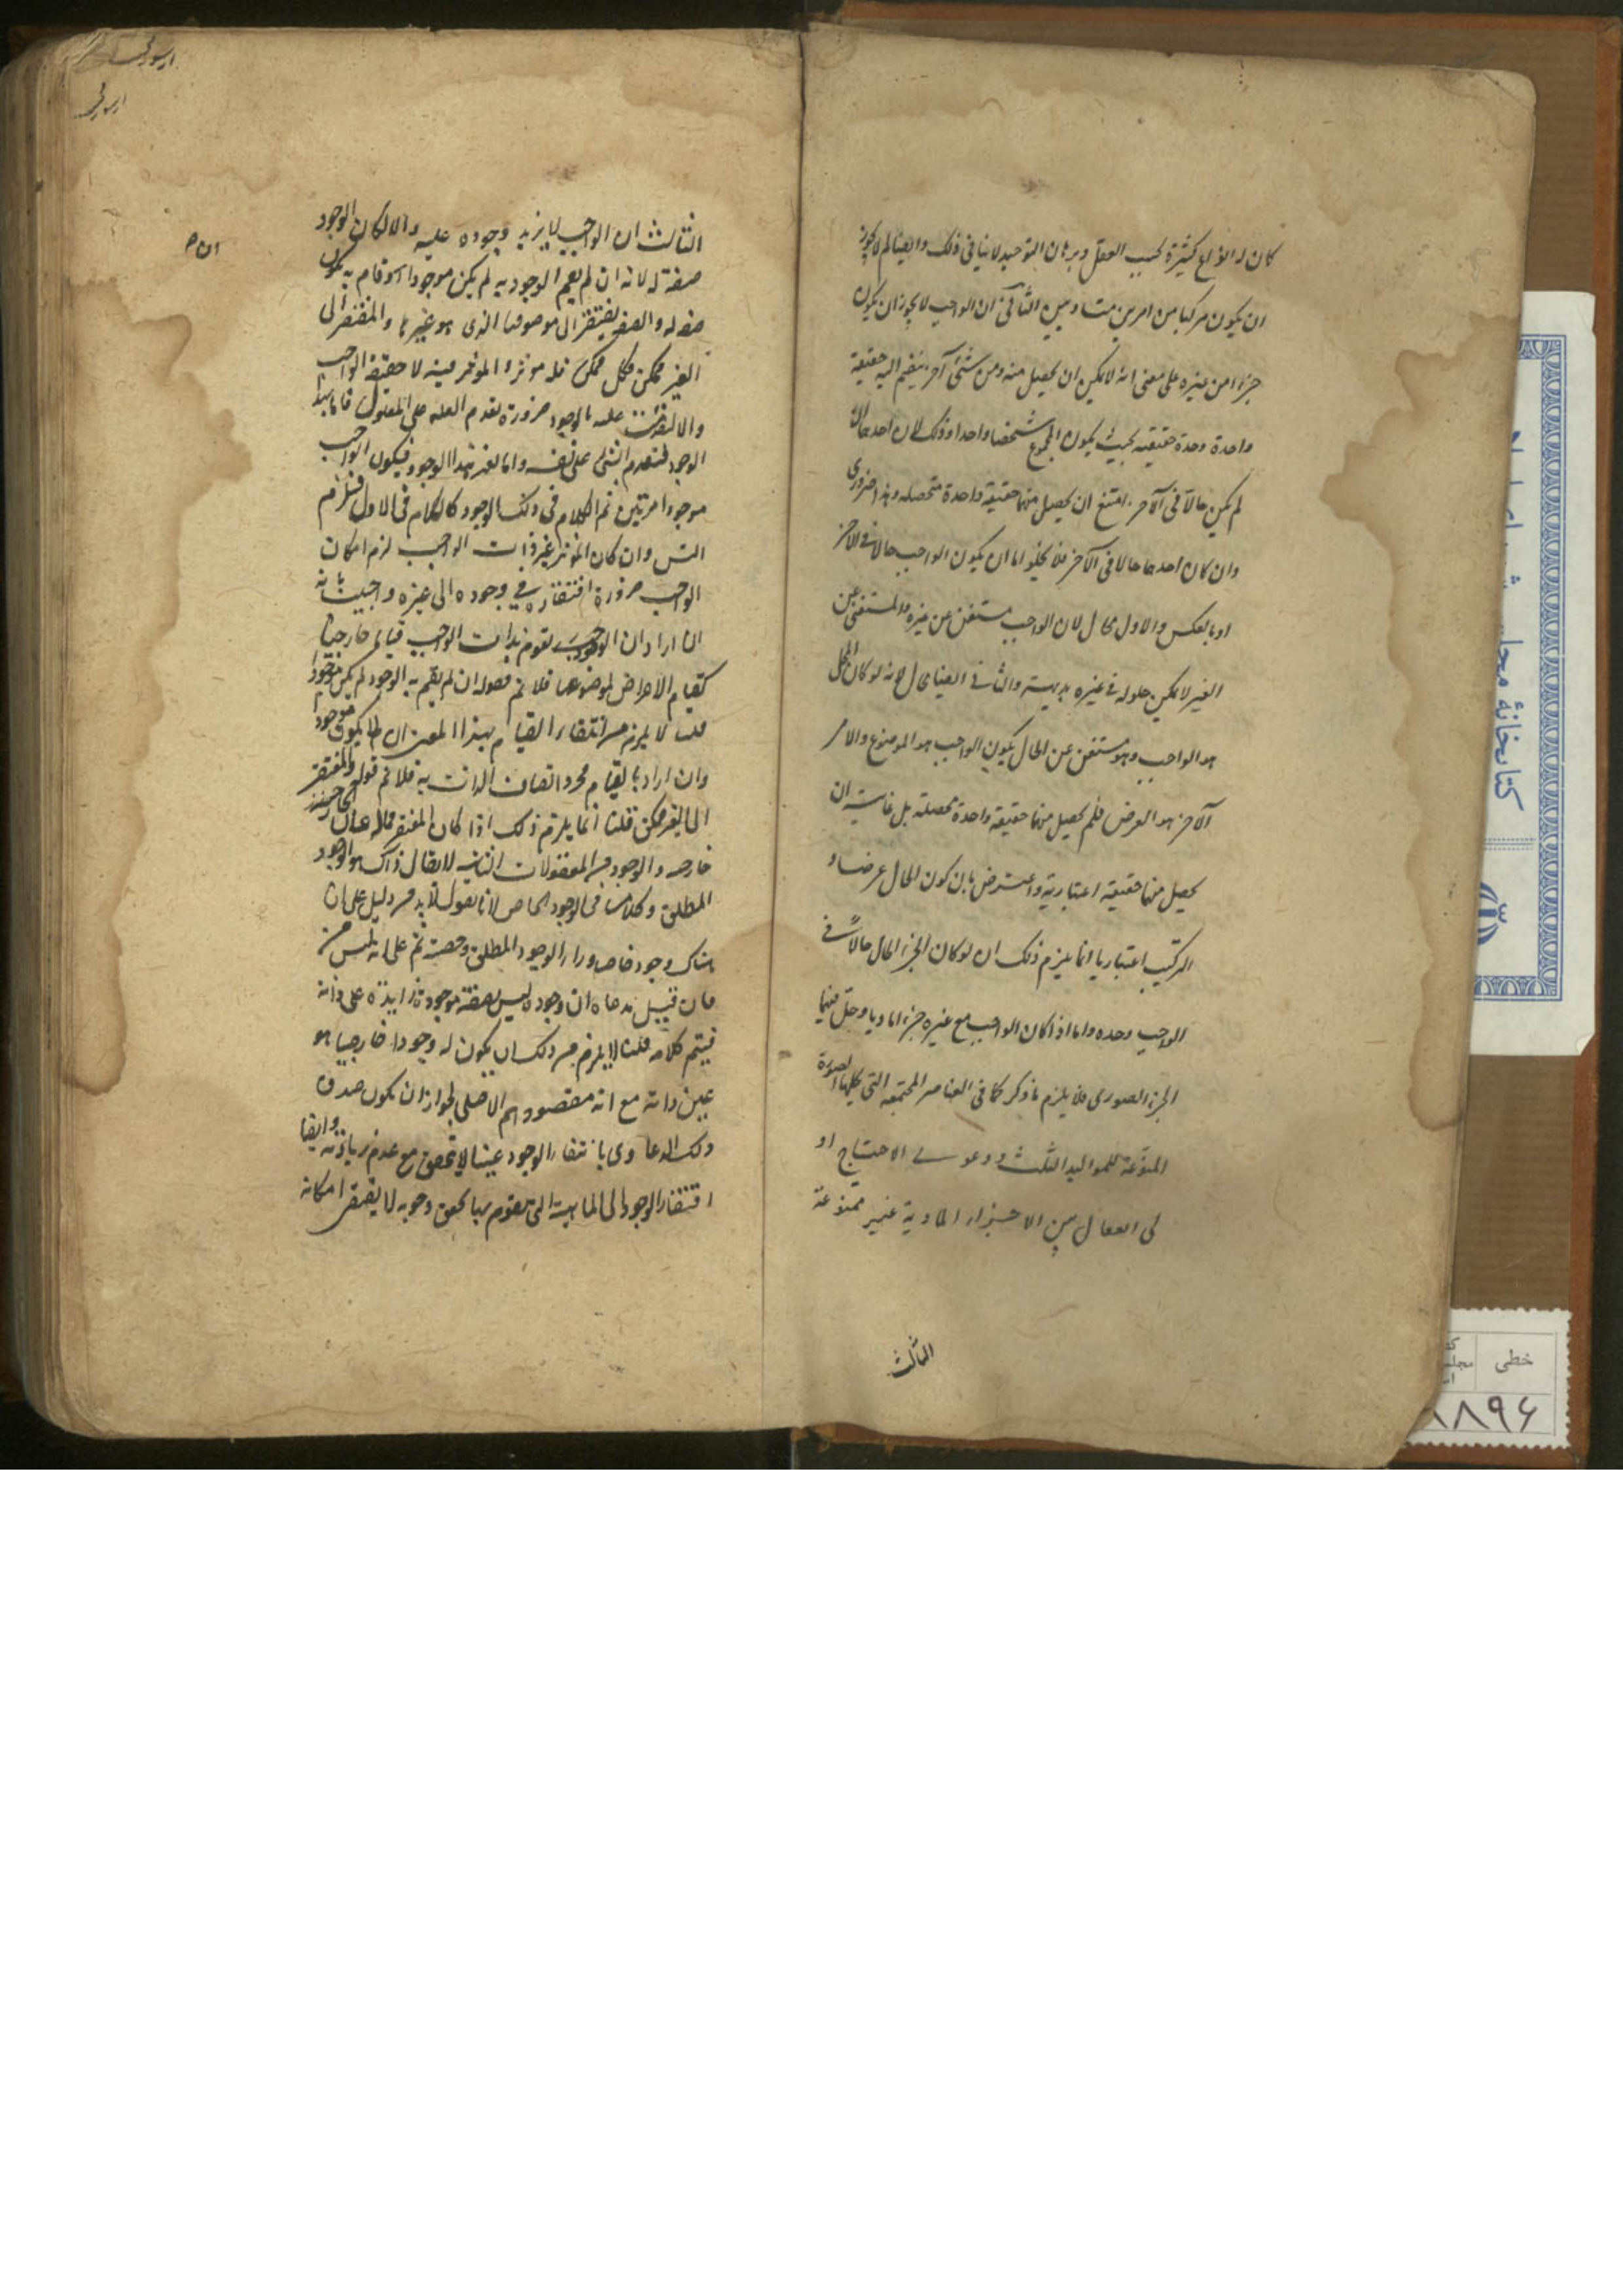 كان له انواع كثيرة بحسب العقل وبرهان التوحيد لا ينافى ذلك وايضا لم لا يجوز
ان يكون مركبا من امرين متساويين الثانى ان الواجب لا يجوز ان يكون
جزءا من غيره على معنى انه لا يمكن ان يحصل منه ومن شئ آخر ينضم اليه حقيقة
واحدة وحدة حقيقيه بحيث يكون المجموع شخصا واحدا وذلك لان احدهما ان
لم يكن حالا فى الآخر امتنع ان يحصل منهما حقيقة واحدة متحصله وهذا ضرورى
وان كان احدهما حالا فى الآخر فلا يخلو اما ان يكون الواجب حالا فى الآخر
او بالعكس والاول محال لان الواجب مستغن عن غيره والمستغنى عن
الغير لا يمكن حلوله فى غيره بديهة والثانى ايضا محال لانه لو كان المحل
هو الواجب وهو مستغن عن الحال يكون الواجب هو الموضوع والامر
الآخر هو العرض فلم يحصل منهما حقيقة واحدة محصلة بل غايته ان
يحصل منهما حقيقة اعتبارية واعترض بان كون الحال عرضا و
التركيب اعتباريا انما يلزم ذلك ان لو كان الجزء الحال حالاً فى
الواجب وحده واما اذا كان الواجب مع غيره جزءا ماديا وحل فيهما
الجزء الصورى فلا يلزم ما ذكر كما فى العناصر المجتمعه التى يحلها الصورة
المنوعة للمواليد الثلث ودعوى الاحتياج او
لى انفعال بين الاجزاء المادية غير ممنوعة
الثالث
الثالث ان الواجب لا يزيد وجوده عليه والا لكان الوجود
صفة له لانه ان لم يقم الوجود به لم يكن موجودا ولو قام به يكون
صفه له والصفه يفتقر الى موصوفها الذى هو غيرها والمفتقر الى
الغير ممكن فكل ممكن فله مؤثر والمؤثر فيه لا حقيقة الواجب
والا لتقدمت عليه بالوجود ضرورة تقدم العلة على المعلول فاما بهذا
الوجود فيتقدم الشئ على نفسه واما بغير هذا الوجود فيكون الواجب
موجودا مرتين ثم الكلام فى ذلك الوجود كالكلام فى الاول فيلزم
التس وان كان المؤثر غير ذات الواجب لزم امكان
الواجب ضرورة افتقاره فى وجوده الى غيره واجيب بانه
ان اراد ان الوجود يقوم بذات الواجب قياما خارجيا
كقيام الاعراض بموضوعها فلا نم قوله ان لم يقم به الوجود لم يكن موجودا
قلت لا يلزم من انتفاء القيام بهذا المعنى ان لا يكون موجودا
وان اراد بالقيام مجرد اتصاف الذات به فلا نم قوله والمفتقر
الى الغير ممكن قلنا انما يلزم ذلك اذا كان المفتقر
خارجيه والوجود من المعقولات الثانيه لا يقال ذاك هو الوجود
المطلق وكلامنا فى الوجود الخاص لانا نقول لا بد من دليل على ان
هناك وجود خاص وراء الوجود المطلق وحصته ثم على انه ليس من
فان قيل مدعاه ان وجوده ليس بصفة موجودة زايدة على ذاته
فيتم كلامه قلت لا يلزم من ذلك ان يكون له وجودا خارجيا هو
عين ذاته مع انه مقصودهم الاصلى لجواز ان يكون صدق
ذلك الدعاوى بانتفاء الوجود عينا لا يحقق مع عدم زيادته وايضا
افتقار الوجود الى الماهية التى تقوم بها يحقق وجوبه لا يقتضى امكانه
كتابخانۀ مجلس
خطى
٨٨٩۶